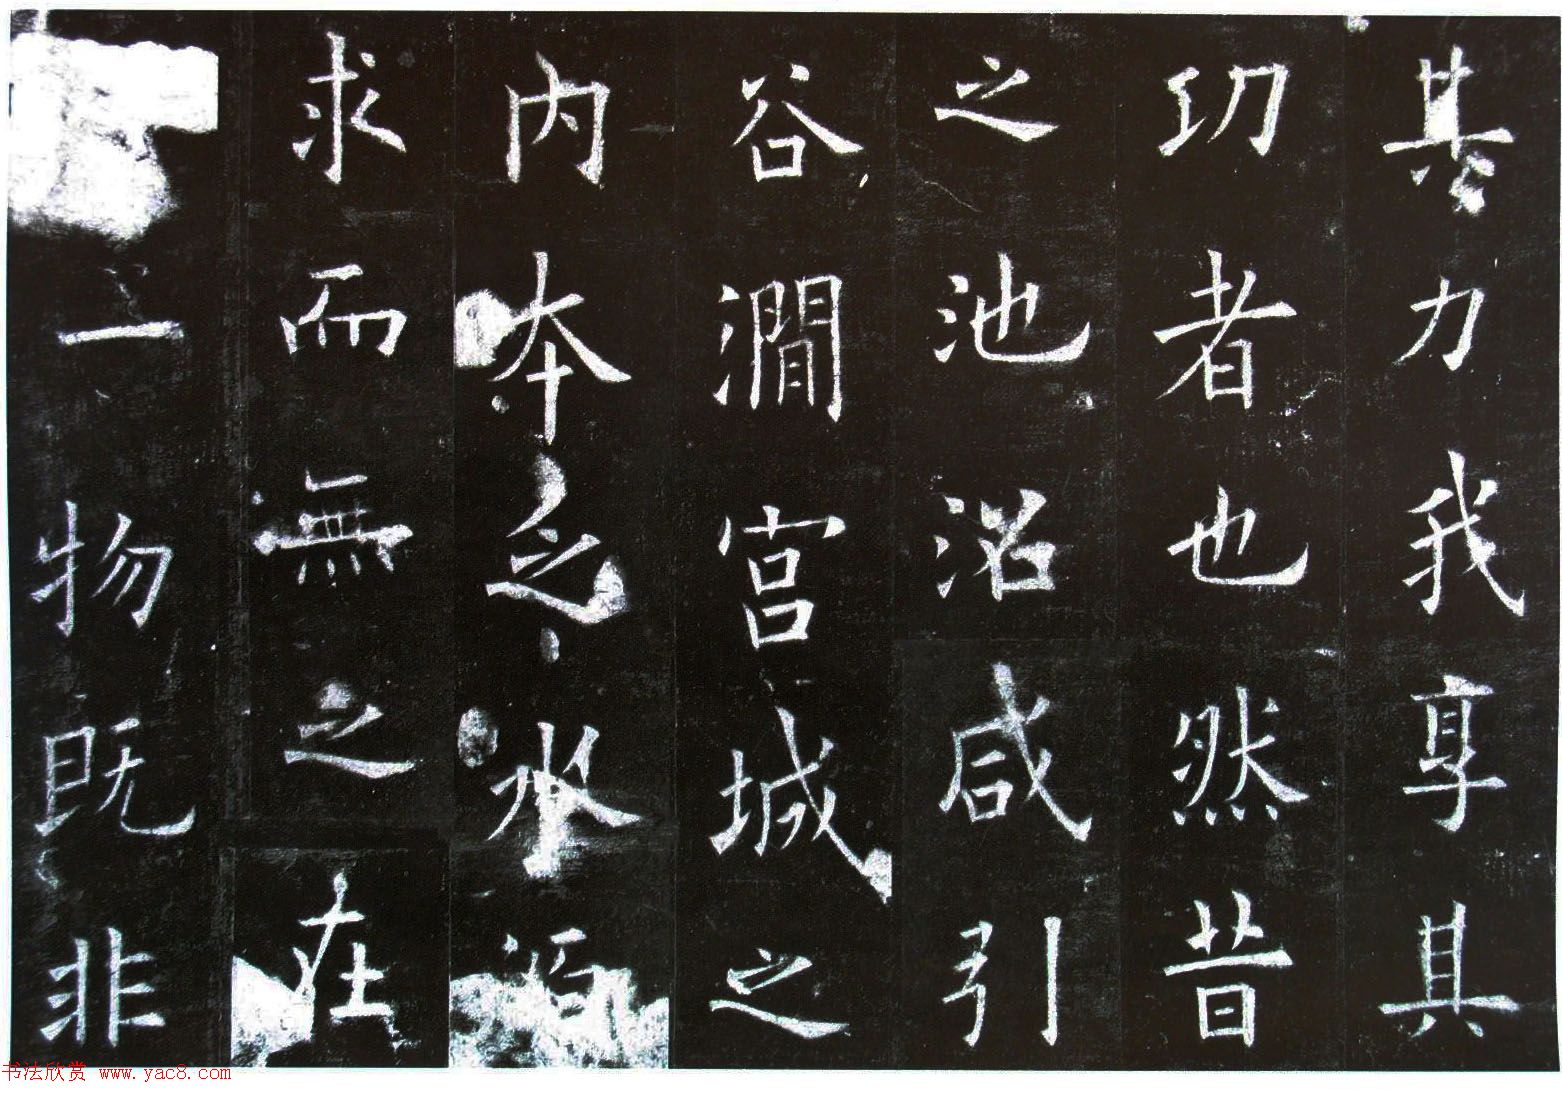 其力我享其
功者也然昔
之池沼咸引
谷澗宮城之
内本之水
求而無之在
一物既非
书法欣赏 www.yac8.com